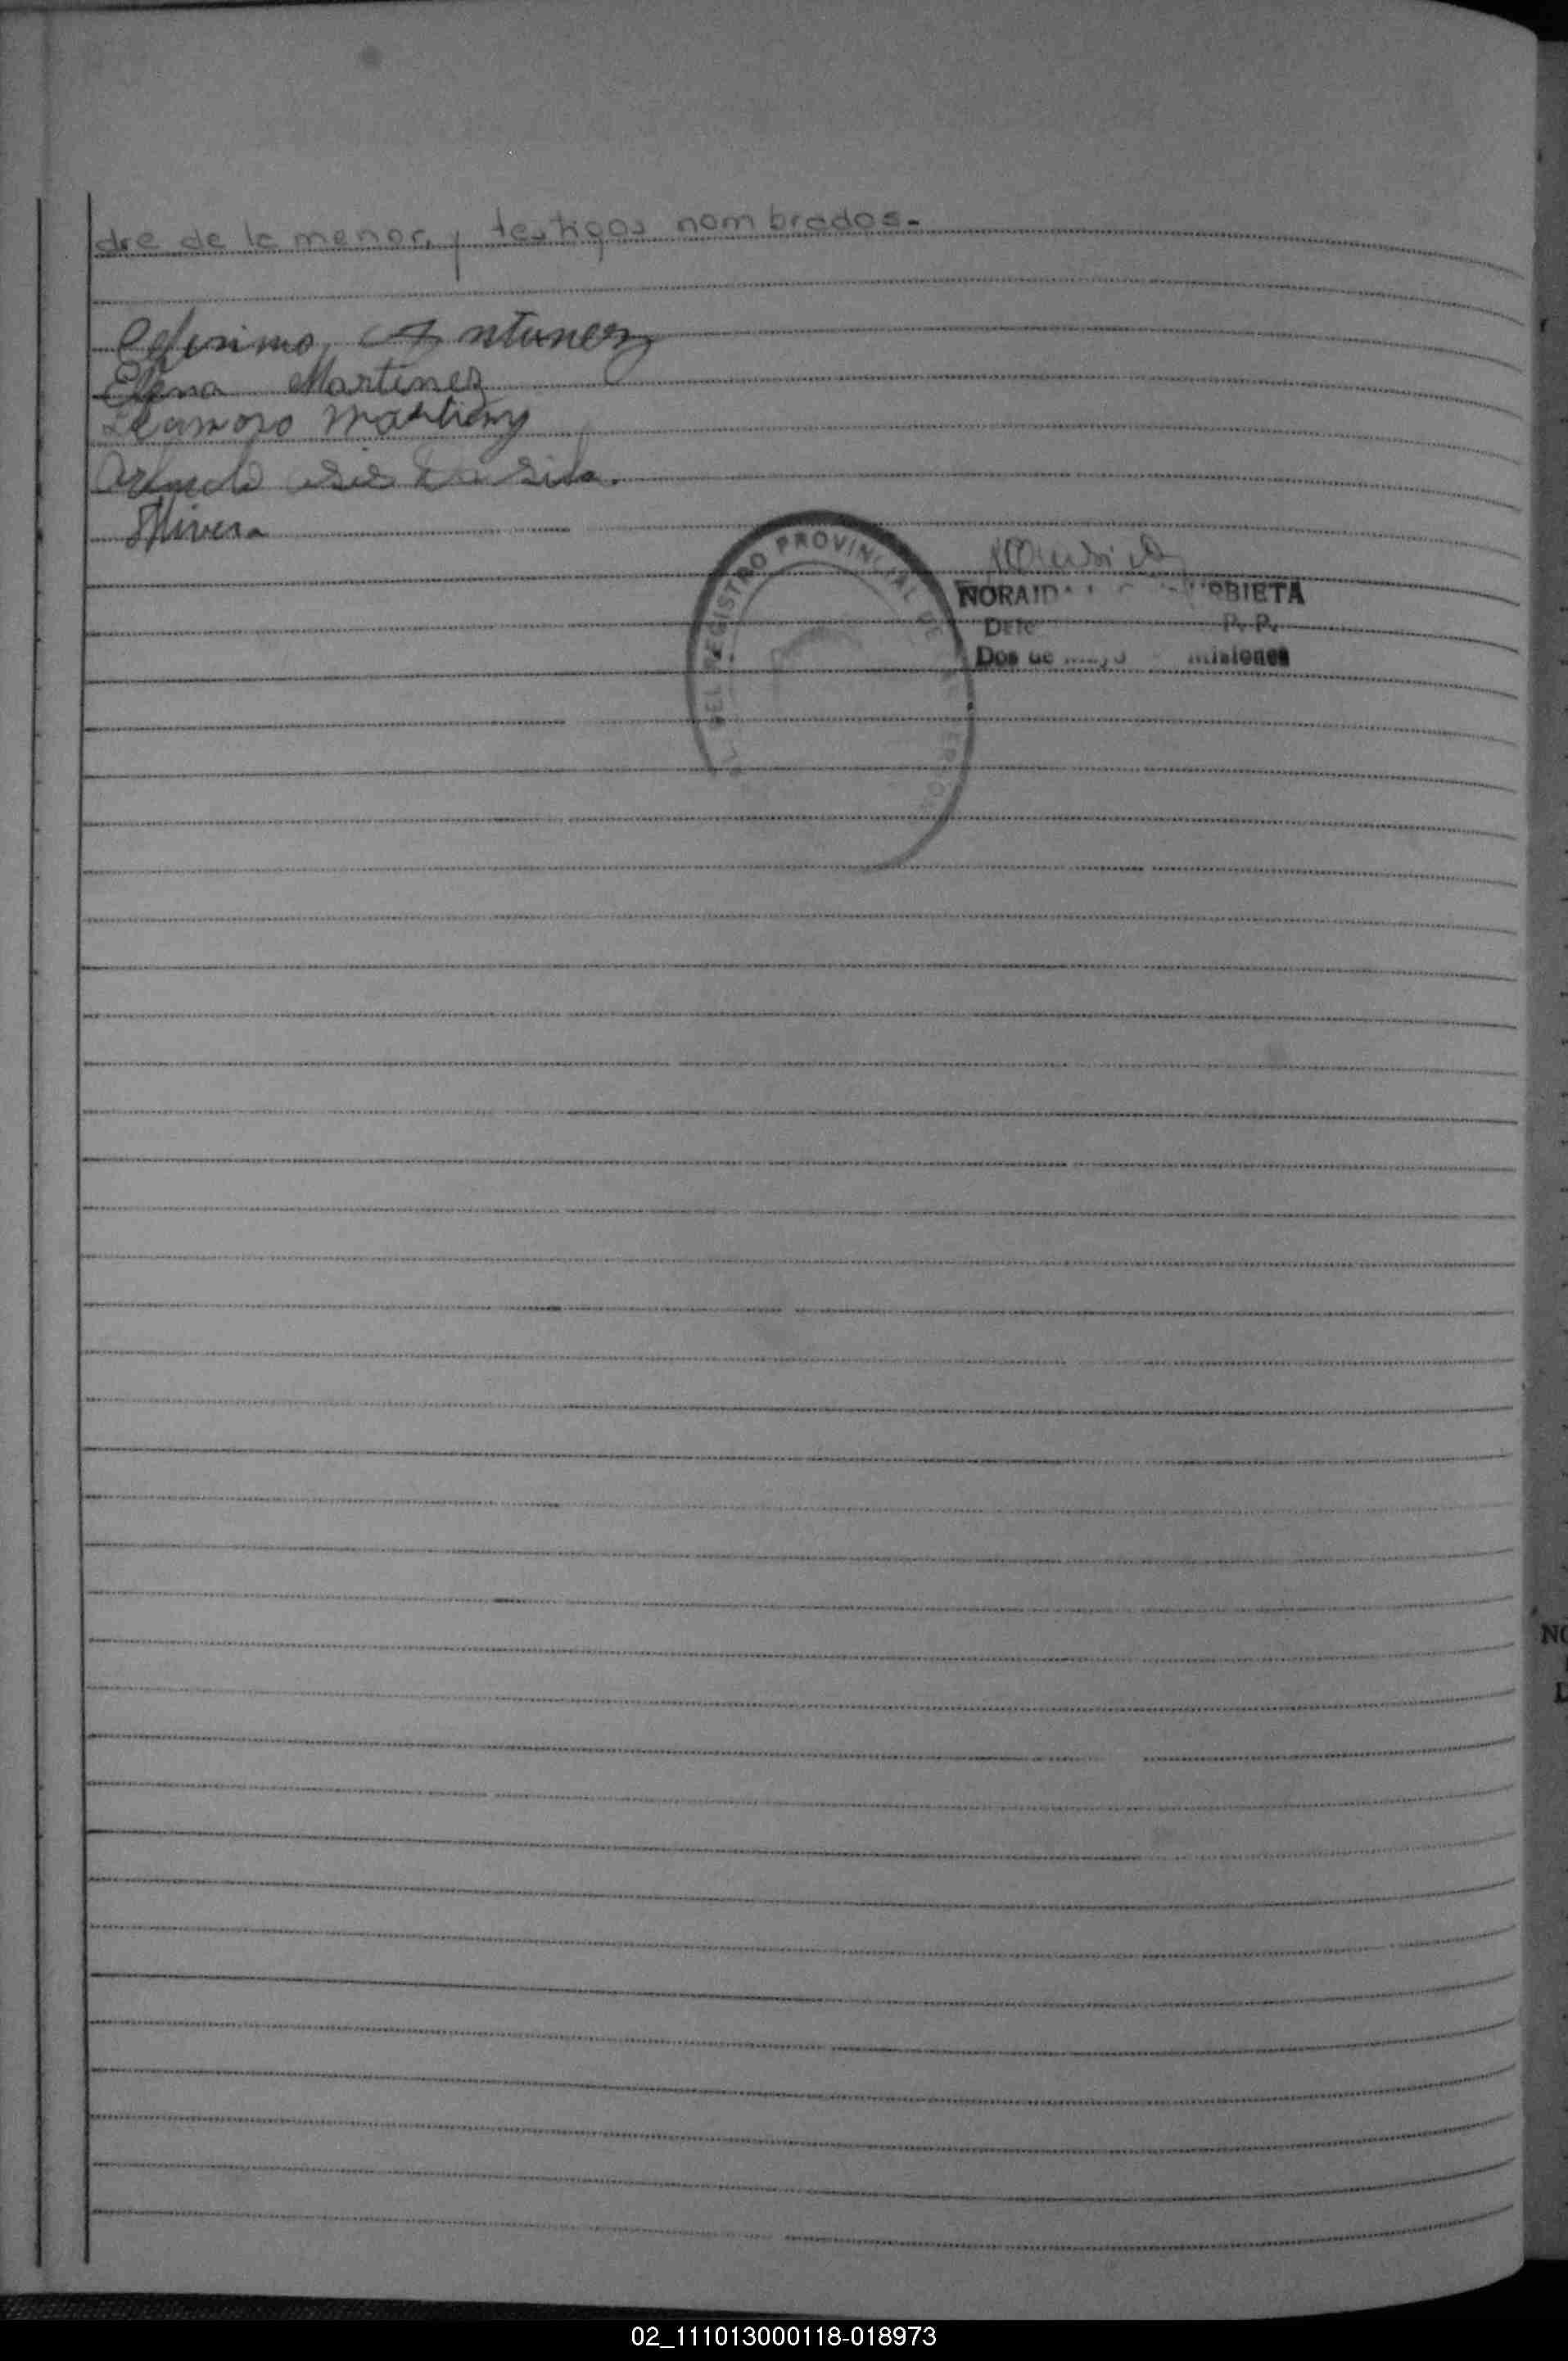 dre de la menor, y testigos nombrados.-
Ceferino Antunez
Elena Martinez
Martinez
Da Silva.
Rivera
DEL REGISTRO PROVINCIAL DE
NORAID URBIETA
P. P.
Dos de Mayo - Misiones
NO
D
02_111013000118-018973